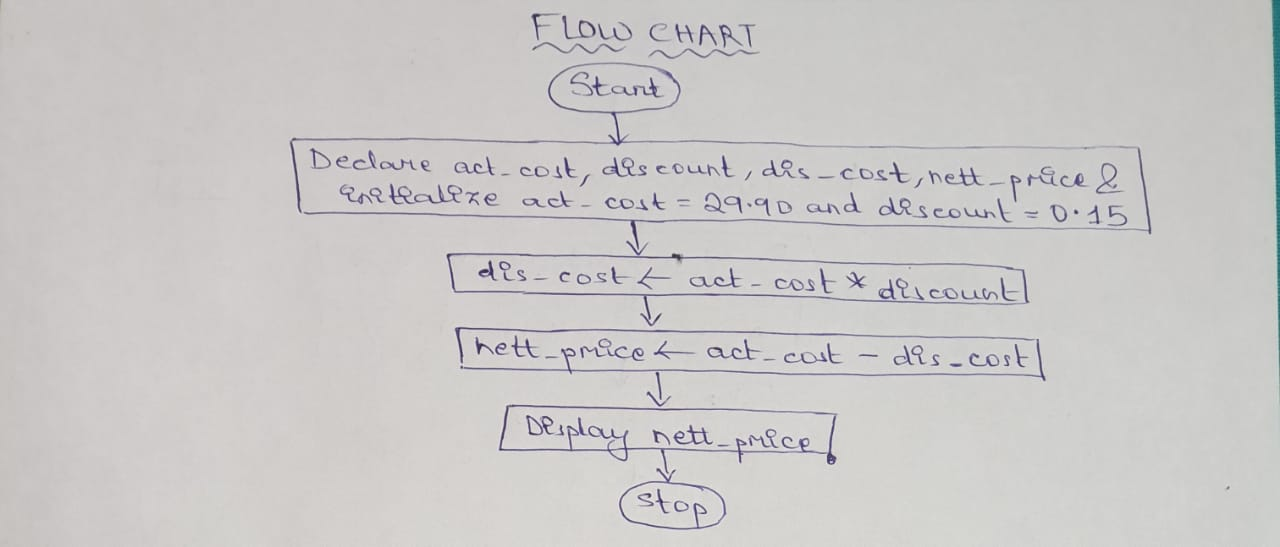 FLOW CHART
Start
Declare act_cost, discount, dis_cost, nett_price &
initialize act_cost = 29.90 and discount = 0.15
dis_cost ← act_cost * discount
nett_price ← act_cost - dis_cost
Display nett_price
Stop